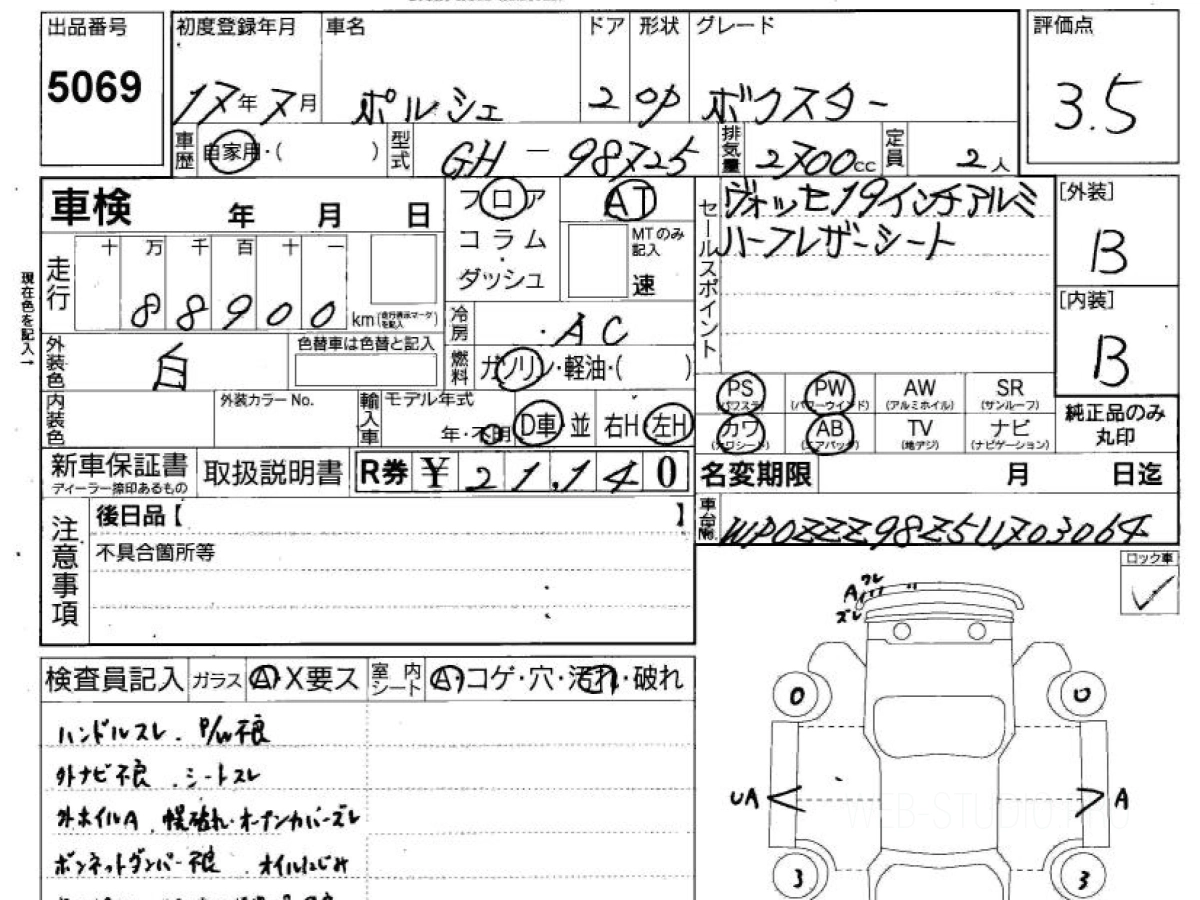 出品番号 初度登録年月 車名 ドア 形状 グレード 評価点
5069 17年7月 ポルシェ 2 OP ボクスター 3.5
車歴 自家用・( ) 型式 GH-98725 排気量 2700cc 定員 2人
車検 年 月 日
フロア AT
コラム
ダッシュ
MTのみ記入
速
セールスポイント ヴォッセ19インチアルミ
ハーフレザーシート
[外装]
B
[内装]
B
現在色を記入→
走行 十 万 千 百 十 一
88900 km (走行表示マークを記入)
冷房 AC
外装色 白 色替車は色替と記入
燃料 ガソリン・軽油・( )
内装色 外装カラーNo. 輸入車 モデル年式
年・不明 D車 並 右H 左H
PS (パワステ) PW (パワーウインド) AW (アルミホイル) SR (サンルーフ)
カワ (カワシート) AB (エアバッグ) TV (地デジ) ナビ (ナビゲーション)
純正品のみ丸印
新車保証書 ディーラー捺印あるもの 取扱説明書 R券 ¥ 21,140
名変期限 月 日迄
注意事項 後日品【 】
不具合箇所等
車台No. WP0ZZZ98Z5U703064
ロック車
✓
A ワレ
ズレ
検査員記入 ガラス A・X要ス 室内シート A・コゲ・穴・汚れ・破れ
ハンドルスレ . P/W不良
外ナビ不良 . シートスレ
外ホイルA . 幌破れ・オープンカバーズレ
ボンネットダンパー不良 . オイルにじみ
0 0
UA A
3 3
WEB-STUDIO